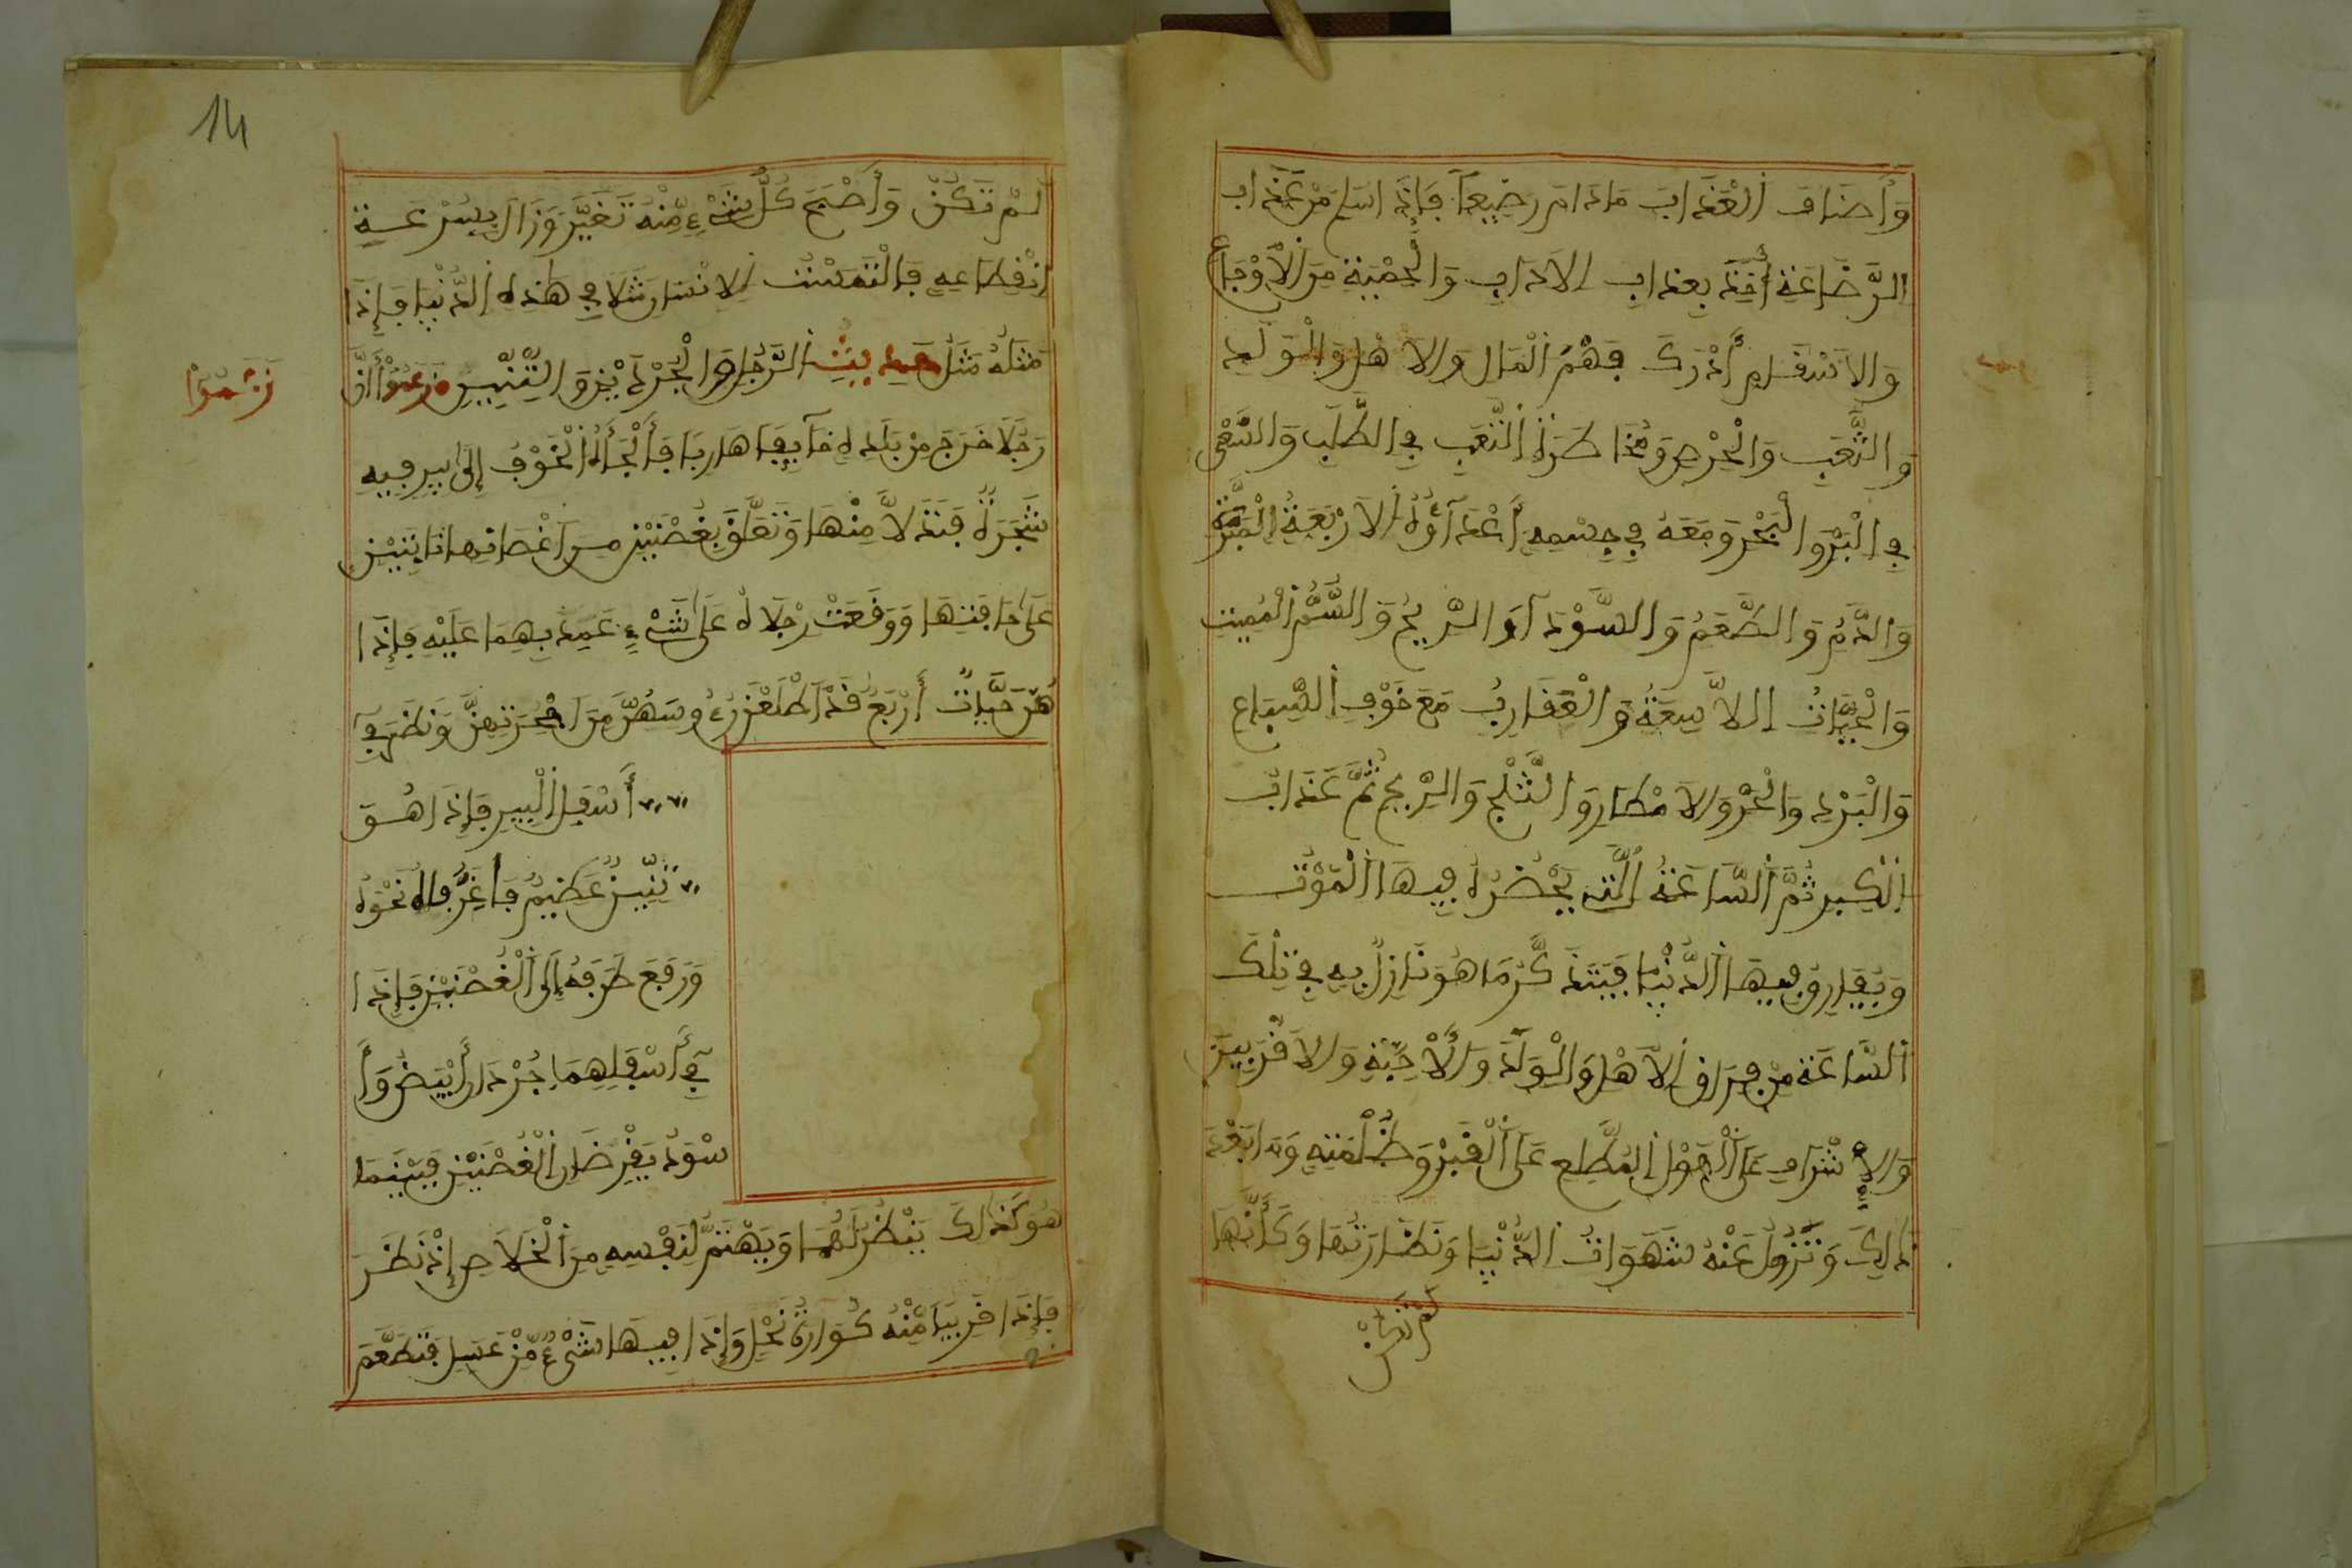 وَأَصْنَافِ الْعَذَابِ مَادَامَ رَضِيعاً فَإِذَا سَلِمَ مِنْ عَذَابِ
الرَّضَاعَةِ أُخِذَ بِعَذَابِ الْأَدَابِ وَالْحِمْيَةِ مِنَ الْأَوْجَاعِ
وَالْأَسْقَامِ أَدْرَكَ فَهَمُّ الْمَالِ وَالْأَهْلِ وَالْوَلَدِ
وَالتَّعَبِ وَالْحِرْصِ وَمُخَاطَرَةُ التَّعَبِ فِي الطَّلَبِ وَالسَّعْيِ
فِي الْبَرِّ وَالْبَحْرِ وَمَعَهُ فِي جِسْمِهِ أَعْدَآؤُهُ الْأَرْبَعَةُ الْمِرَّةُ
وَالدَّمُ وَالطَّعَمُ وَالسَّوْدَآءُ وَالرِّيحُ وَالسَّمُّ الْمُمِيتِ
وَالْحَيَّاتُ اللاَّسِعَةُ وَالْعَقَارِبُ مَعَ خَوْفِ السِّبَاعِ
وَالْبَرْدِ وَالْحَرِّ وَالْأَمْطَارِ وَالثَّلْجِ وَالرِّيحِ ثُمَّ عَذَابُ
الْكِبَرِ ثُمَّ السَّاعَةُ الَّتِي يَحْضُرُهُ فِيهَا الْمَوْتُ
وَيُفَارِقُ فِيهَا الدُّنْيَا فَيَتَذَكَّرُ مَا هُوَ نَازِلٌ بِهِ فِي تِلْكَ
السَّاعَةِ مِنْ فِرَاقِ الْأَهْلِ وَالْوَلَدِ وَالْأَحِبَّةِ وَالْأَقْرَبِينَ
وَالْإِشْرَافِ عَلَى الْهَوْلِ الْمُطَّلِعِ عَلَى الْقَبْرِ وَظُلْمَتِهِ وَمَا بَعْدَ
ذَالِكَ وَتَزُولُ عَنْهُ شَهَوَاتُ الدُّنْيَا وَنَضَارَتُهَا وَكَأَنَّهَا
لَمْ تَكُنْ
14
لَمْ تَكُنْ وَأَصْبَحَ كُلُّ شَيْءٍ مِّنْهُ تَغَيَّرَ وَزَالَ بِسُرْعَةِ
انْقِطَاعِهِ فَالْتَمَسْتُ لِلْإِنْسَانِ مَثَلاً فِي هَذِهِ الدُّنْيَا فَإِذَا
مَثَلُهُ مَثَلُ حَدِيثِ الرَّجُلِ وَالْجُرَذَيْنِ وَالتِّنِّينِ زَعَمُوا أَنَّ
زَعَمُوا
رَجُلاً خَرَجَ مِنْ بَلَدِهِ خَآئِفاً هَارِباً فَأَلْجَأَهُ الْخَوْفُ إِلَى بِيرٍ فِيهِ
شَجَرَةٌ فَتَدَلاَّ مِنْهَا وَتَعَلَّقَ بِغُصْنَيْنِ مِنَ اغْصَانِهَا نَابِتَيْنِ
عَلَى حَافَتِهَا وَوَقَعَتْ رِجْلاَهُ عَلَى شَيْءٍ عَمَدَ بِهِمَا عَلَيْهِ فَإِذَا
هُنَّ حَيَّاتٌ أَرْبَعُ قَدْ أَطْلَعْنَ رُءُوسَهُنَّ مِنَ اجْحِرَتِهِنَّ وَنَظَرَ فِي
أَسْفَلِ الْبِيرِ فَإِذَا هُوَ
تِنِّينٌ عَظِيمٌ فَاغِرٌ فَاهُ نَحْوَهُ
وَرَفَعَ طَرْفَهُ إِلَى الْغُصْنَيْنِ فَإِذَا
فِي أَسْفَلِهِمَا جُرْذَانِ أَبْيَضُ وَأَ
سْوَدُ يَقْرِضَانِ الْغُصْنَيْنِ فَبَيْنَمَا
هُوَ كَذَالِكَ يَنْظُرُ لَهُمَا وَيَهْتَمُّ لِنَفْسِهِ مِنَ الْخَلاَصِ إِذْ نَظَرَ
فَإِذَا قَرِيباً مِّنْهُ كُوَارَةُ نَحْلٍ وَإِذَا فِيهَا شَيْءٌ مِّنْ عَسَلٍ فَتَطَعَّمَ